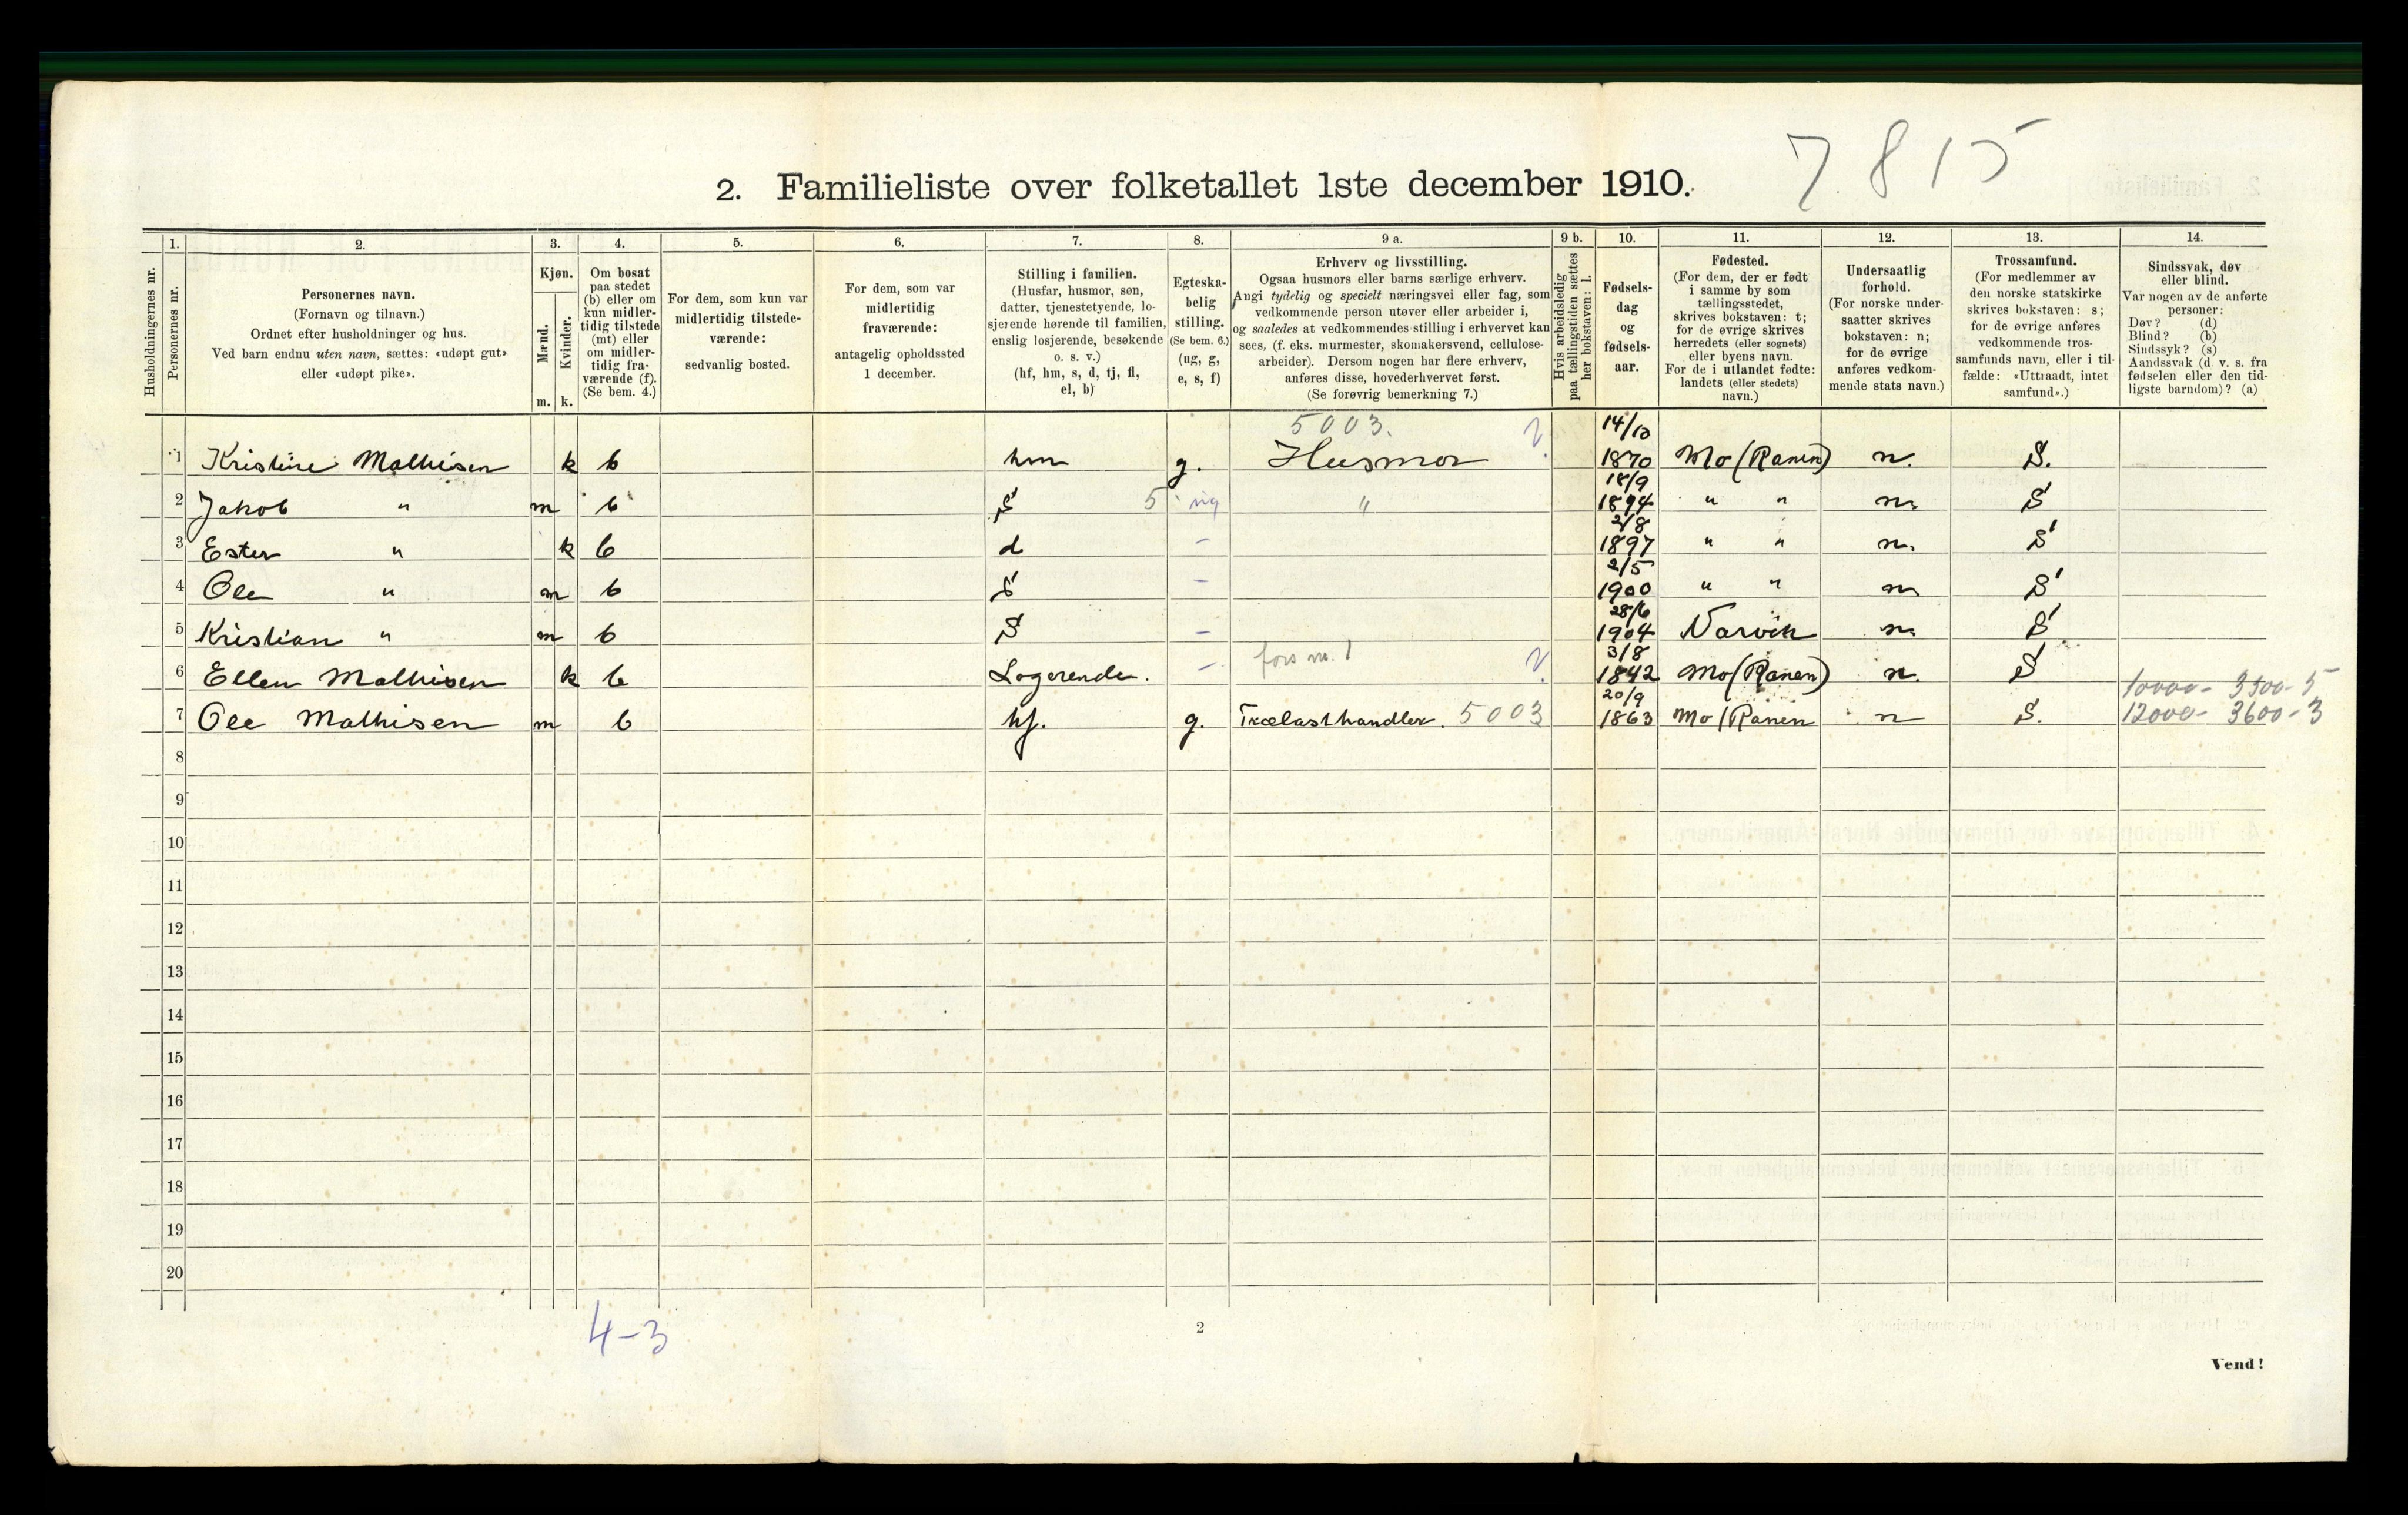 7815
2. Familieliste over folketallet 1ste december 1910.
Husholdningernes nr.
1.
Personernes nr.
2.
Personernes navn.
(Fornavn og tilnavn.)
Ordnet efter husholdninger og hus.
Ved barn endnu uten navn, sættes: «udøpt gut»
eller «udøpt pike».
3.
Kjøn.
Mænd.
Kvinder.
m. k.
4.
Om bosat
paa stedet
(b) eller om
kun midler-
tidig tilstede
(mt) eller
om midler-
tidig fra-
værende (f).
(Se bem. 4.)
5.
For dem, som kun var
midlertidig tilstede-
værende:
sedvanlig bosted.
6.
For dem, som var
midlertidig
fraværende:
antagelig opholdssted
1 december.
7.
Stilling i familien.
(Husfar, husmor, søn,
datter, tjenestetyende, lo-
sjerende hørende til familien,
enslig losjerende, besøkende
o. s. v.)
(hf, hm, s, d, tj, fl,
el, b)
8.
Egteska-
belig
stilling.
(Se bem. 6.)
(ug, g,
e, s, f)
9 a.
Erhverv og livsstilling.
Ogsaa husmors eller barns særlige erhverv.
Angi tydelig og specielt næringsvei eller fag, som
vedkommende person utøver eller arbeider i,
og saaledes at vedkommendes stilling i erhvervet kan
sees, (f. eks. murmester, skomakersvend, cellulose-
arbeider). Dersom nogen har flere erhverv,
anføres disse, hovederhvervet først.
(Se forøvrig bemerkning 7.)
9 b.
Hvis arbeidsledig
paa tællingstiden sættes
her bokstaven: l.
10.
Fødsels-
dag
og
fødsels-
aar.
11.
Fødested.
(For dem, der er født
i samme by som
tællingsstedet,
skrives bokstaven: t;
for de øvrige skrives
herredets (eller sognets)
eller byens navn.
For de i utlandet fødte:
landets (eller stedets)
navn.)
12.
Undersaatlig
forhold.
(For norske under-
saatter skrives
bokstaven: n;
for de øvrige
anføres vedkom-
mende stats navn.)
13.
Trossamfund.
(For medlemmer av
den norske statskirke
skrives bokstaven: s;
for de øvrige anføres
vedkommende tros-
samfunds navn, eller i til-
fælde: «Uttraadt, intet
samfund».)
14.
Sindssvak, døv
eller blind.
Var nogen av de anførte
personer:
Døv? (d)
Blind? (b)
Sindssyk? (s)
Aandssvak (d. v. s. fra
fødselen eller den tid-
ligste barndom)? (a)
5003.
1 Kristine Mathisen k b hm g. Husmor 14/10 1870 Mo (Ranen) n. S.
2 Jakob " m b S 5 ug " 18/9 1894 " " n. S
3 Ester " k b d - 2/8 1897 " " n. S
4 Ole " m b S - 2/5 1900 " " n S
5 Kristian " m b S - 28/6 1904 Narvik n. S
6 Ellen Mathisen k b Logerende. - fors m. 1 3/8 1842 Mo (Ranen) n. S
10000- 3500-5
7 Ole Mathisen m b hf. g. Trælasthandler. 5003 20/9 1863 Mo (Ranen n S. 12000- 3600-3
8
9
10
11
12
13
14
15
16
17
18
19
20
4-3
2
Vend!